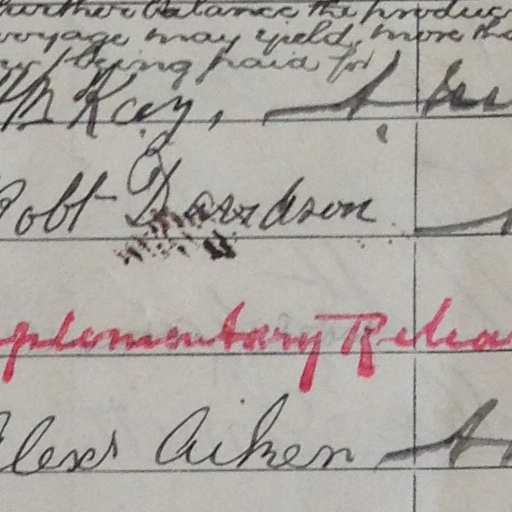 further balance the produc
voyage may yield, more tha
being paid for
McKay,
Robt Davidson
plementary Relea
Alexr Aiken